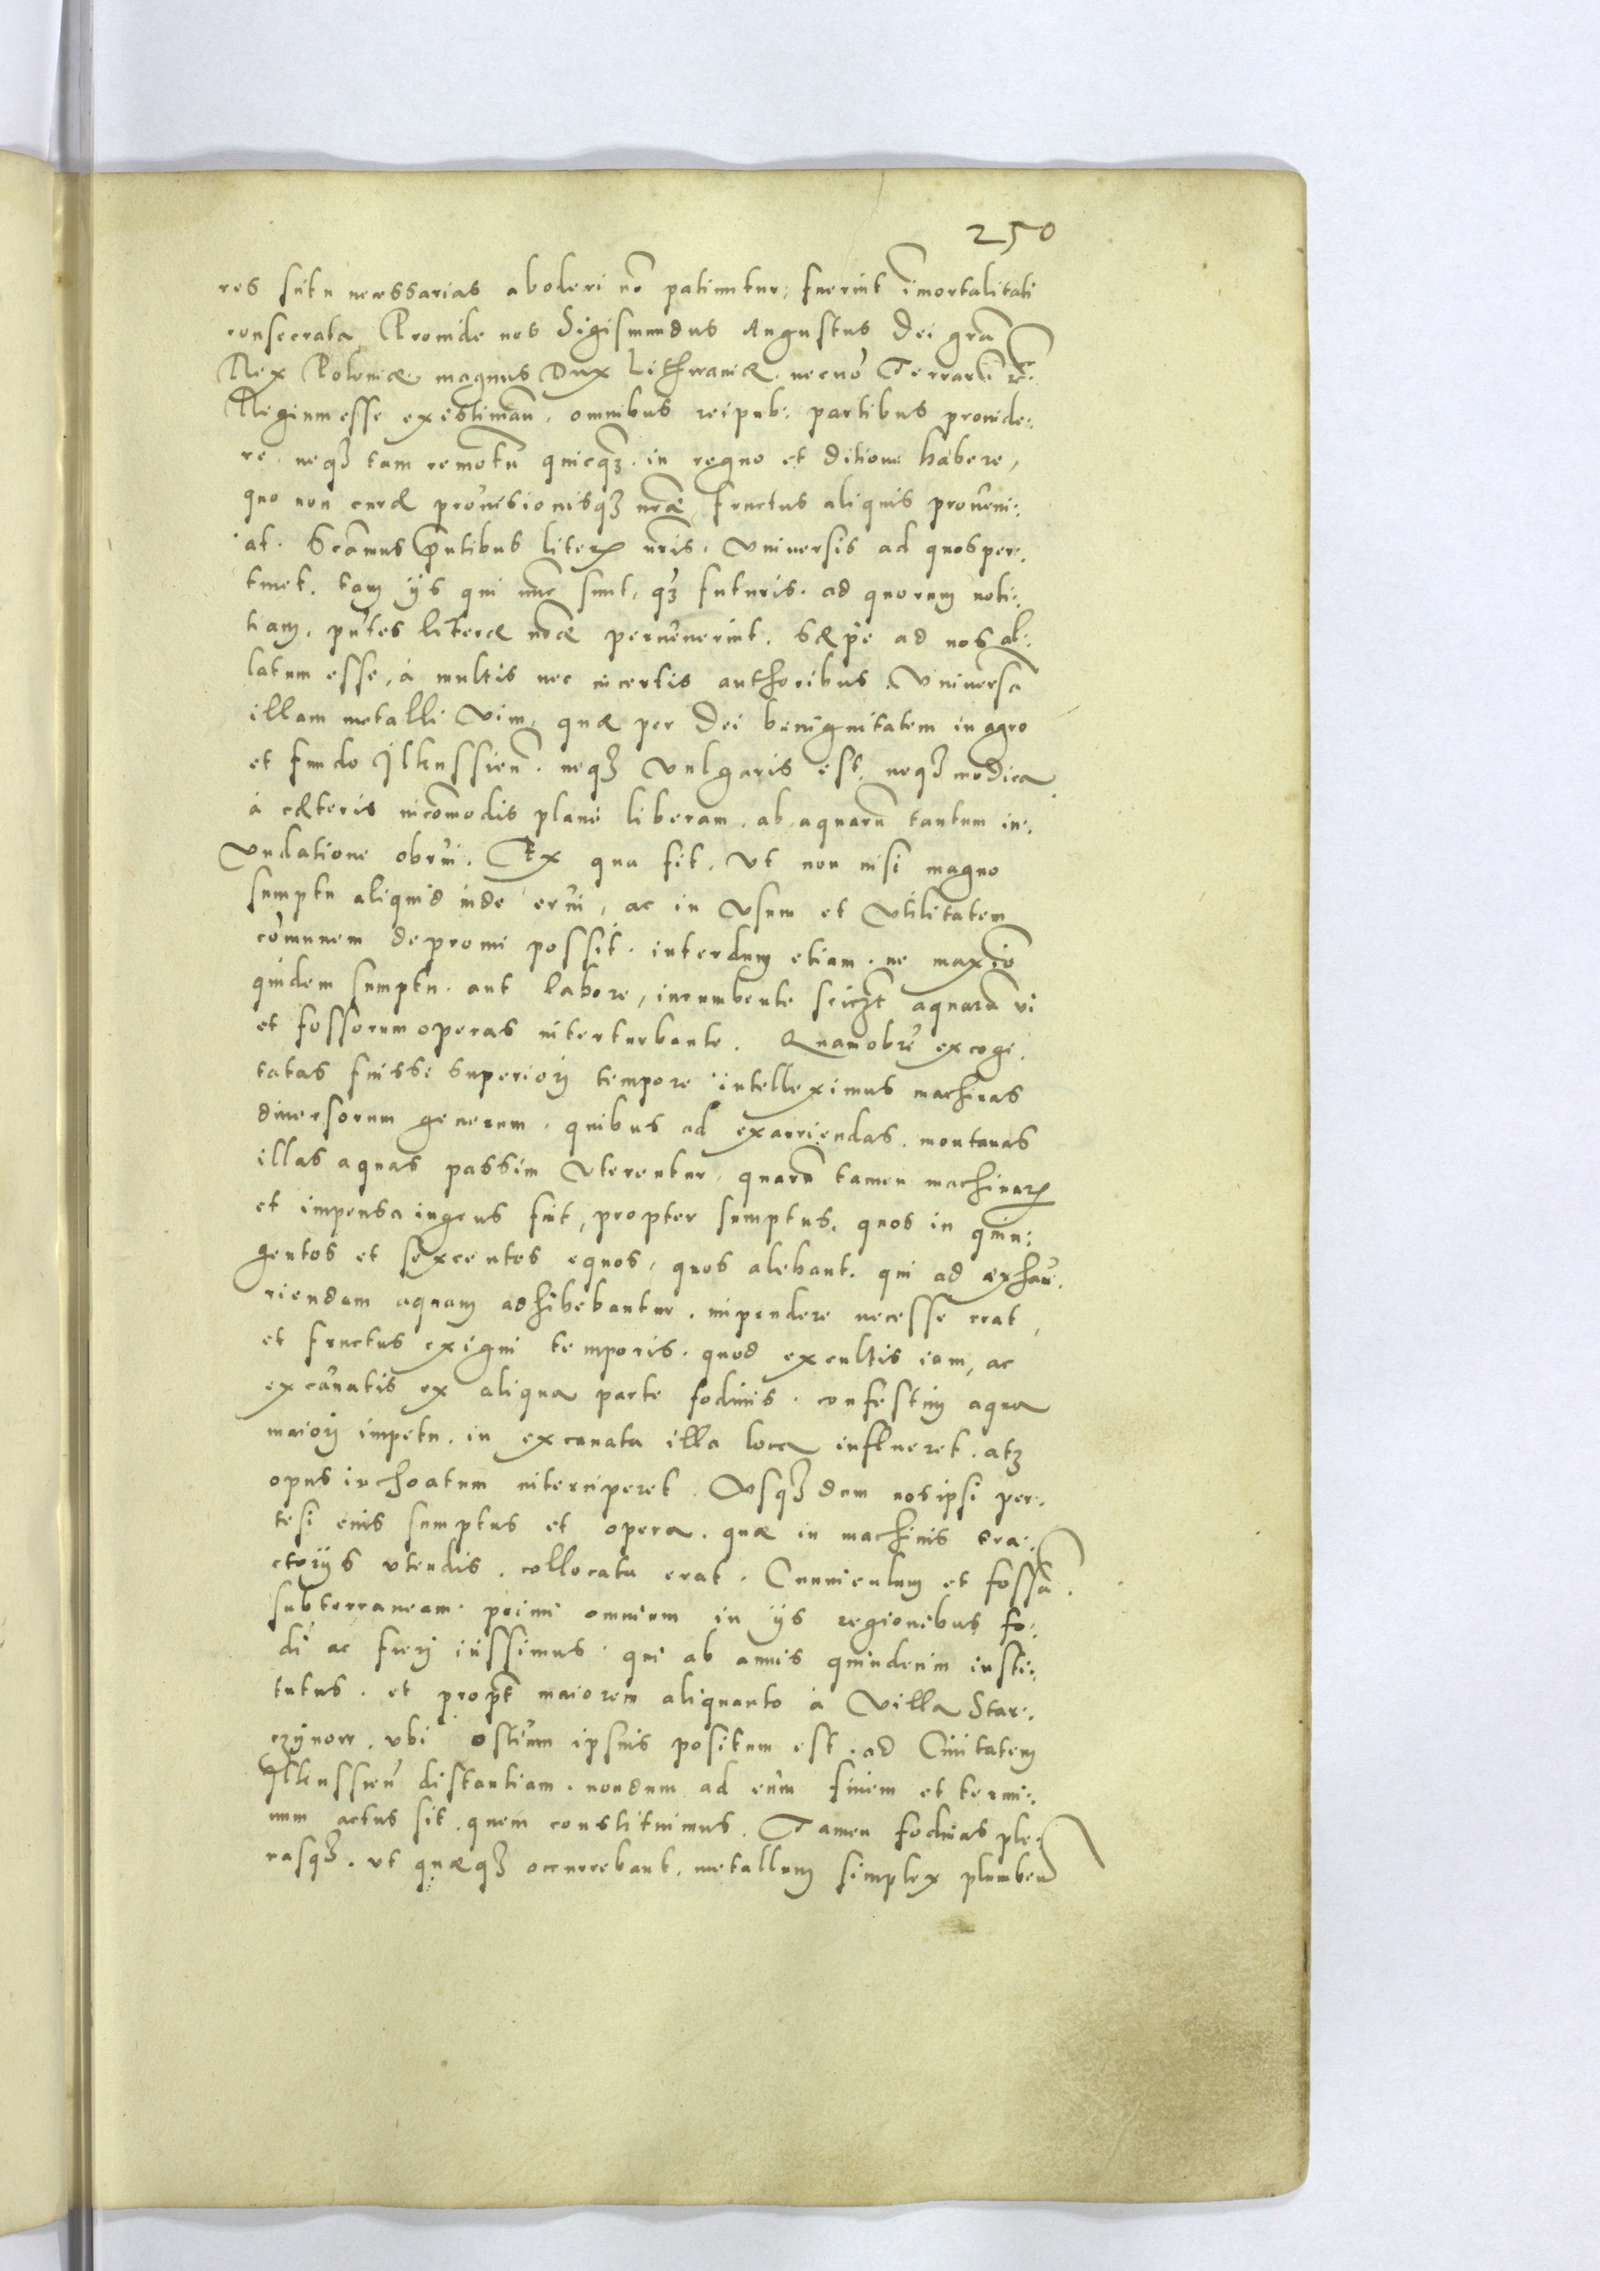 250
res situ necessarias aboleri nō patiuntur: fuerint īmortalitati
consecrata. Proinde nos Sigismundus Augustus Dei grā
Rex Poloniæ magnus Dux Lithwaniæ. necnō Terrarū rē.
Regium esse existimam̄. omnibus reipub: partibus prouide:
re neqꝫ tam remotū quicqꝫ. in regno et ditione habere,
quo non curæ prouisionisqꝫ nr̄æ fructus aliquis proueni:
at. Scāmus pn̄tibus literꝝ nr̄is. Vniuersis ad quos per:
tinet. tam ijs qui nūc sunt, qꝫ futuris. ad quorum noti:
tiam. pn̄tes literæ nr̄æ peruenerint. Sæpe ad nos al:
latum esse, à multis nec incertis authoribus. Vniuersā
illam metalli Vim, quæ per Dei benignitatem in agro
et fundo Ilkussieñ. neqꝫ Vulgaris est, neqꝫ modica
à cæteris incōmodis planè liberam. ab aquarū tantum in:
Vndatione obrui. Ex qua fit. Vt non nisi magno
sumptu aliquid inde erui, ac in Vsum et Vtilitatem
cōmunem depromi possit. interdum etiam. ne maxiō
quidem sumptu. aut labore, incumbente scicꝫt aquarū vi
et fossorum operas interturbante. Quamobrē excogi.
tatas fuisse superiorj tempore intelleximus machinas
diuersorum generum. quibus ad exauriendas. montanas
illas aquas passim Vterentur, quarū tamen machinaꝝ
et impensa ingens fuit, propter sumptus. quos in quin:
gentos et sexcentos equos, quos alebant. qui ad exhau.
riendam aquam adhibebantur. impendere necesse erat,
et fructus exigui temporis. quod excultis iam, ac
excauatis ex aliqua parte fodinis. confestim aqua
maiorj impetu. in excauata illa loca influeret. atqꝫ
opus inchoatum interciperet. Vsqꝫ dum nos ipsi per.
tesi eius sumptus et opera. quæ in machinis tra:
ctorijs vtendis. collocata erat. Cuniculum et fossā.
subterraneam primi omnium in ijs regionibus fo:
di ac fierj iussimus. qui ab annis quindecim insti:
tutus. et propt̄ maiorem aliquanto à Villa Star:
czijnow. vbi ostium ipsius positum est. ad Ciuitatem
Ilkussieñ distantiam. nondum ad eum finem et termi:
num actus sit. quem constituimus. Tamen fodinas ple:
rasqꝫ. vt quæqꝫ occurrebant. metallum simplex plumbeū